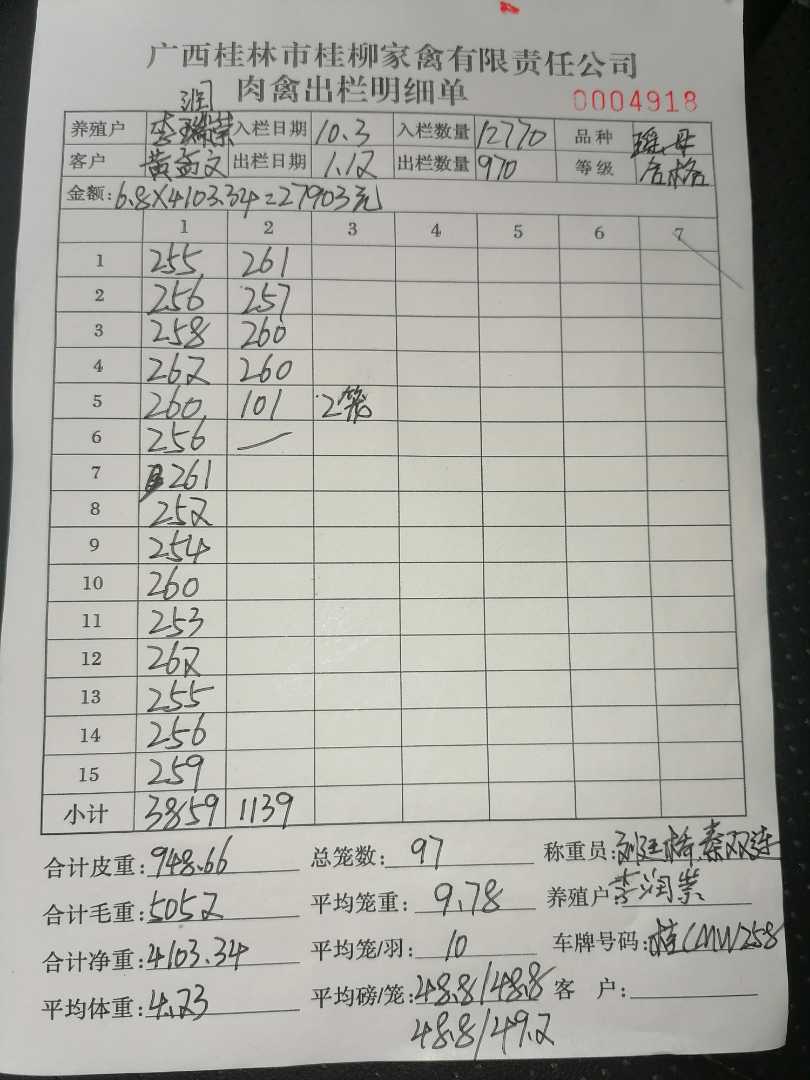 广西桂林市桂柳家禽有限责任公司
肉禽出栏明细单
0004918
润
养殖户 李瑞荣 入栏日期 10.3 入栏数量 12770 品种 瑶.母
客户 黄孟文 出栏日期 1.12 出栏数量 970 等级 合格
金额:6.8×4103.34=27903元
1 2 3 4 5 6 7
1 255 261
2 256 257
3 258 260
4 262 260
5 260 101 2笼
6 256 —
7 261
8 252
9 254
10 260
11 253
12 262
13 255
14 256
15 259
小计 3859 1139
合计皮重:948.66 总笼数:97 称重员:秦双连
合计毛重:5052 平均笼重:9.78 养殖户:李润荣
合计净重:4103.34 平均笼/羽:10 车牌号码:桂CMW258
平均体重:4.23 平均磅/笼:48.8/48.8 客 户:
48.8/49.2